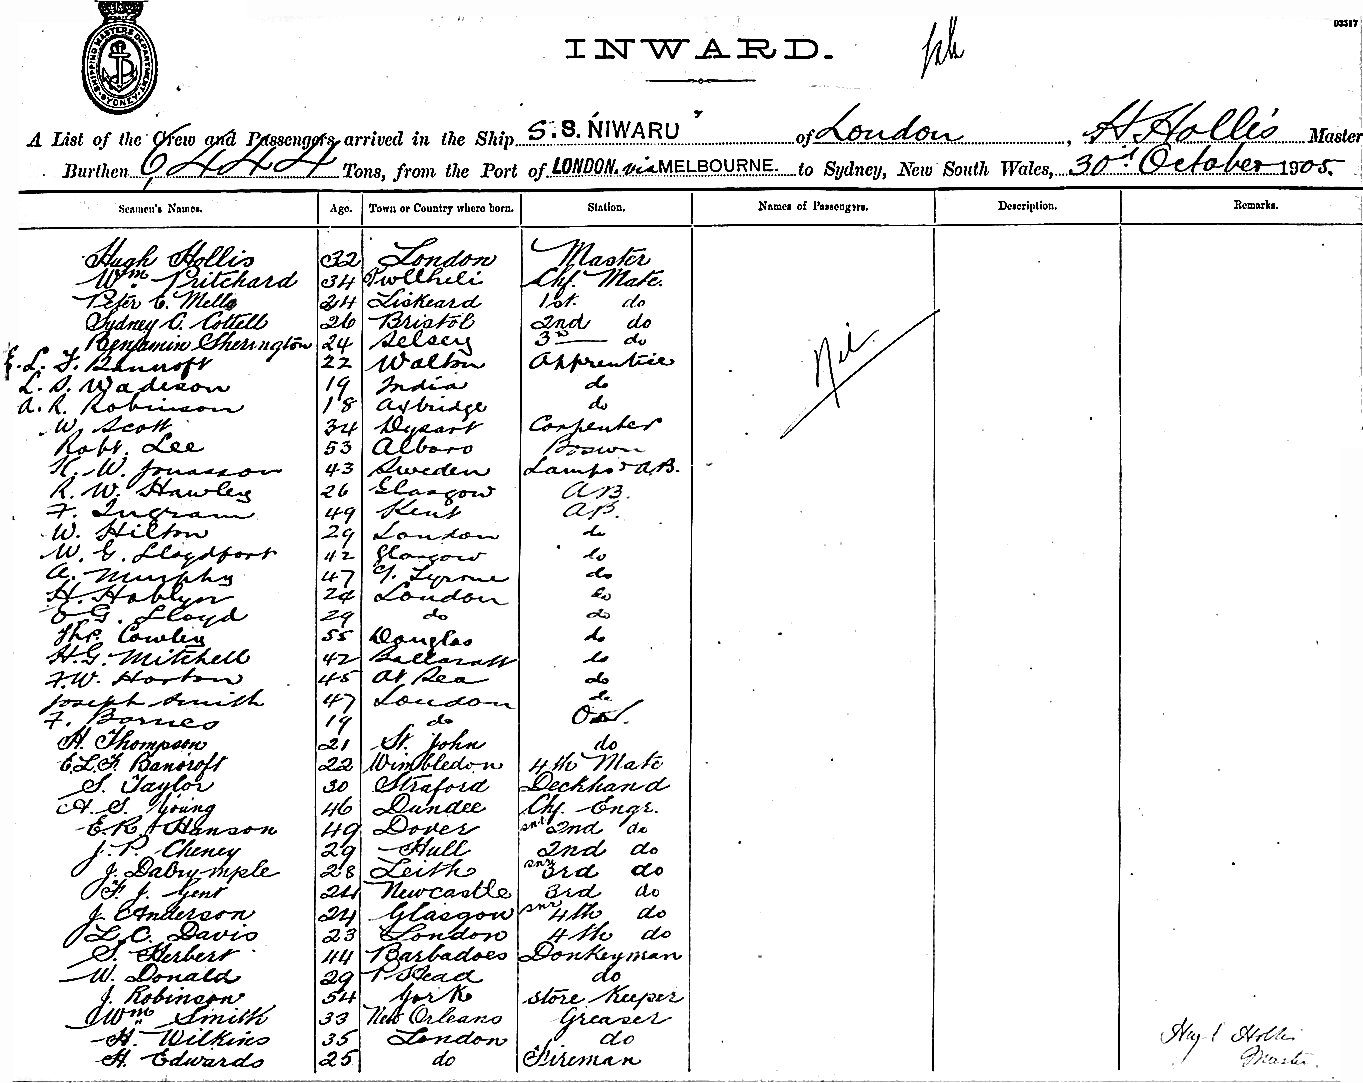 03517
SHIPPING MASTERS DEPARTMENT SYDNEY
INWARD.
A List of the Crew and Passengers arrived in the Ship S.S. NIWARU of London, H Hollis Master
Burthen 6,444 Tons, from the Port of LONDON. via MELBOURNE. to Sydney, New South Wales, 30th October 1905.
Seamen's Names. Age. Town or Country where born. Station. Names of Passengers. Description. Remarks.
Hugh Hollis 32 London Master
Wm Pritchard 34 Pwllheli Chf. Mate.
Peter C. Mells 24 Liskeard 1st. do
Sydney C. Cottell 26 Bristol 2nd do
Benjamin Sherington 24 Selsey 3rd do
E. L. F. Bancroft 22 Walton Apprentice
L. S. Wadeson 19 India do
A. R. Robinson 18 Axbridge do
Nil.
W. Scott 34 Dysart Carpenter
Robt. Lee 53 Alboro Bosun
K. W. Jonasson 43 Sweden Lamps & A.B.
R. W. Hawley 26 Glasgow A.B.
F. Ingram 49 Kent A.B.
W. Hilton 29 London do
W. G. Lloydfort 42 Glasgow do
A. Murphy 47 Tyrone do
H. Hoblyn 24 London do
E. G. Lloyd 29 do do
Thos. Cowley 55 Douglas do
H. G. Mitchell 42 Ballaratt do
F. W. Horton 45 At Sea do
Joseph Smith 47 London do
F. Barnes 19 do
H. Thompson 21 St. John do
E. L. F. Bancroft 22 Wimbledon 4th Mate
S. Taylor 30 Straford Deckhand
A. S. Young 46 Dundee Chf. Engr.
E. R. J. Hanson 49 Dover snr 2nd do
J. P. Cheney 29 Hull 2nd do
J. Dalrymple 28 Leith snr 3rd do
F. J. Gent 24 Newcastle 3rd do
J. Anderson 24 Glasgow snr 4th do
L. C. Davis 23 London 4th do
S. Herbert 44 Barbadoes Donkeyman
W. Donald 29 P. Head do
J. Robinson 54 York Store Keeper
Wm Smith 33 New Orleans Greaser
H. Wilkins 35 London do
H. Edwards 25 do Fireman
Hugh Hollis
Master.